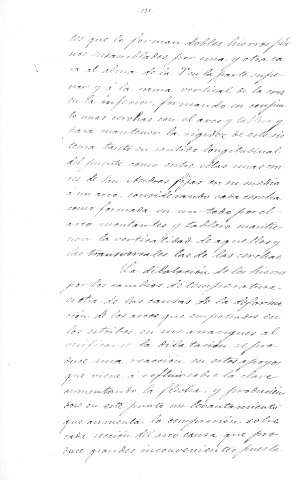 tes que lo forman dobles hierros pla-
nos ensamblados por una y otra ca-
ra al alma de la T en la parte supe-
rior y á la rama vertical de la cruz
en la inferior, formando en conjun-
to unas cerchas con el arco y tablero y
para mantener la rigidez de este sis-
tema tanto en sentido longitudinal
del puente como entre ellas unas cru-
ces de San Andrés fijas en su medio
á un arco, considerando cada cercha
como formada en un todo por el
arco montantes y tablero mantie-
nen la verticalidad de aquellos y
las transversales las de las cerchas.
La dilatación de los hierros
por los cambios de temperatura
es otra de las causas de la deforma-
ción de los arcos que empotrados en
los estribos en sus arranques al
verificarse la dilatación se pro-
duce una reacción en estos apoyos
que viene á refluir sobre la clave
aumentando la flecha, y producien-
dose en este punto un levantamiento
que aumenta la compresión sobre
cada sección del arco causa que pro-
duce grandes inconvenientes pues le